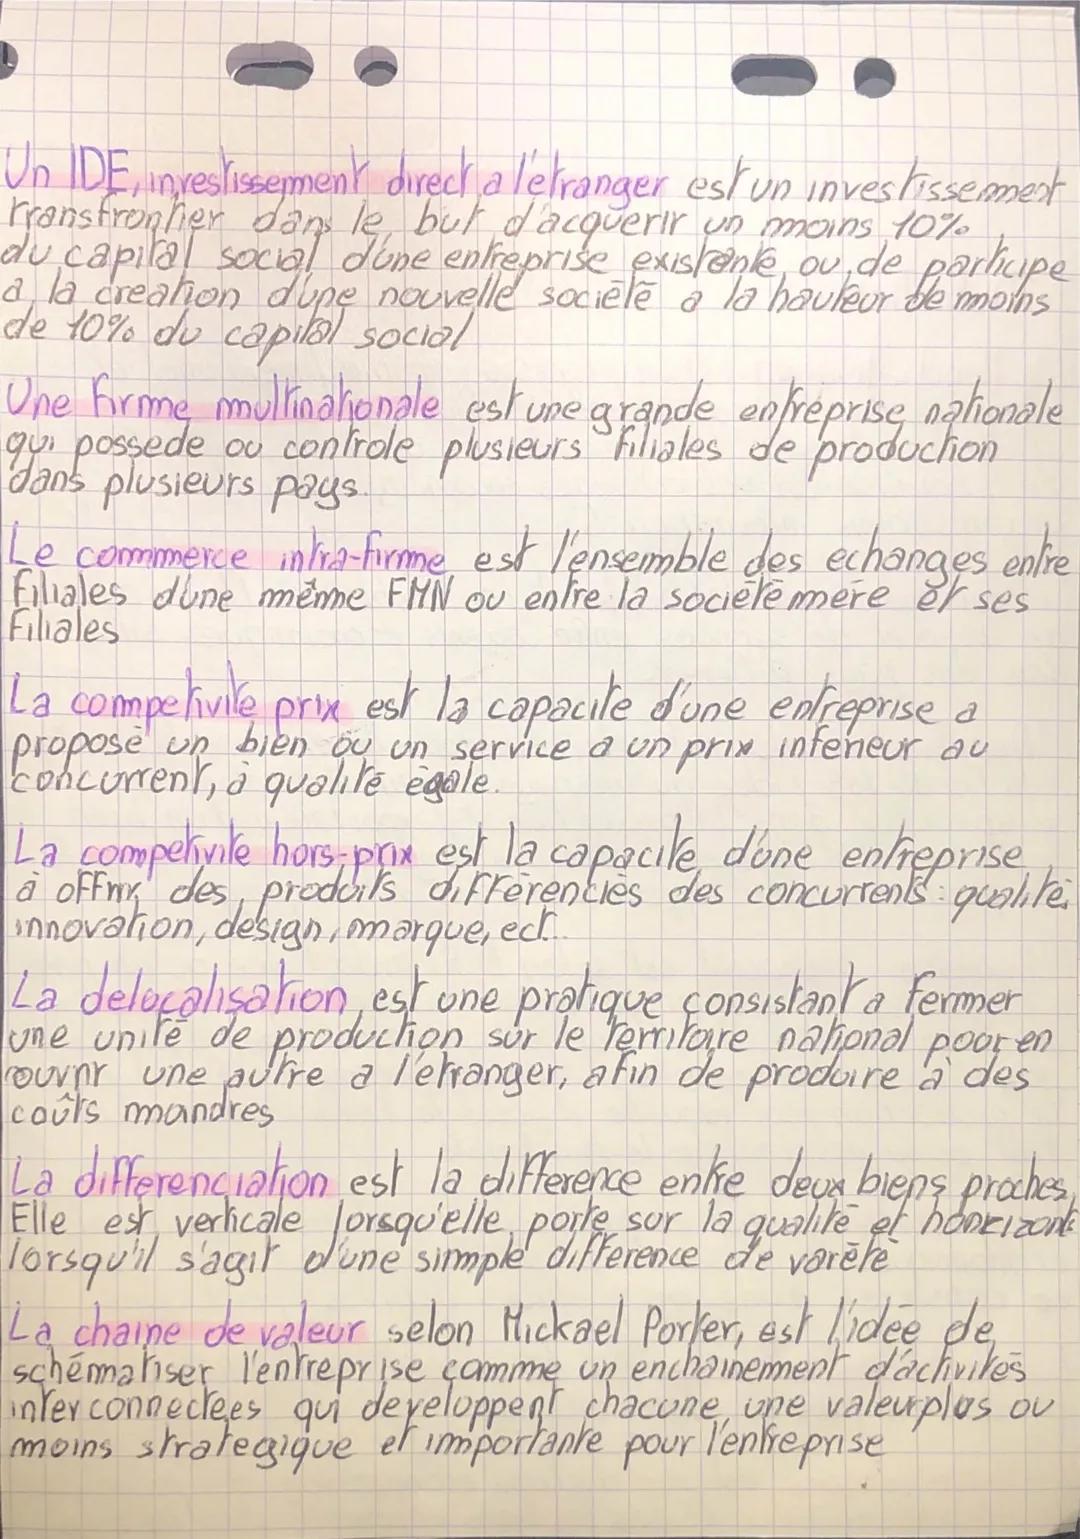 Un IDE, investissement direct a l'etranger est un investissement
transfrontier dans le but d'acquerir un moins 10%
du capital social d'une entreprise existante ou de participe
a la creation d'une nouvelle société a la hauteur de moins
de 10% du capital social
Une firme multinationale est une grande entreprise nationale
qui possede ou controle plusieurs filiales de production
dans plusieurs pays.
Le commmerce intra-firme est l'ensemble des echanges entre
filiales d'une même FMN ou entre la société mère et ses
filiales
La competivite prix est la capacite d'une entreprise a
proposé un bien ou un service a un prix inferieur au
concurrent, à qualité égale.
La competivite hors-prix est la capacite d'une entreprise
à offrir des produits différenciés des concurrents : qualité,
innovation, design, marque, ect...
La delocalisation est une pratique consistant a fermer
une unité de production sur le territoire national pour en
rouvrir une autre a l'etranger, afin de produire à des
coûts moindres
La differenciation est la difference entre deux biens proches,
Elle est verticale lorsqu'elle porte sur la qualité et
lorsqu'il s'agit d'une simple difference de varété
La chaine de valeur selon Mickael Porter, est l'idée de
schématiser l'entreprise comme un enchainement d'activités
interconnectées qui developpent chacune une valeur plus ou
moins strategique et importante pour l'entreprise